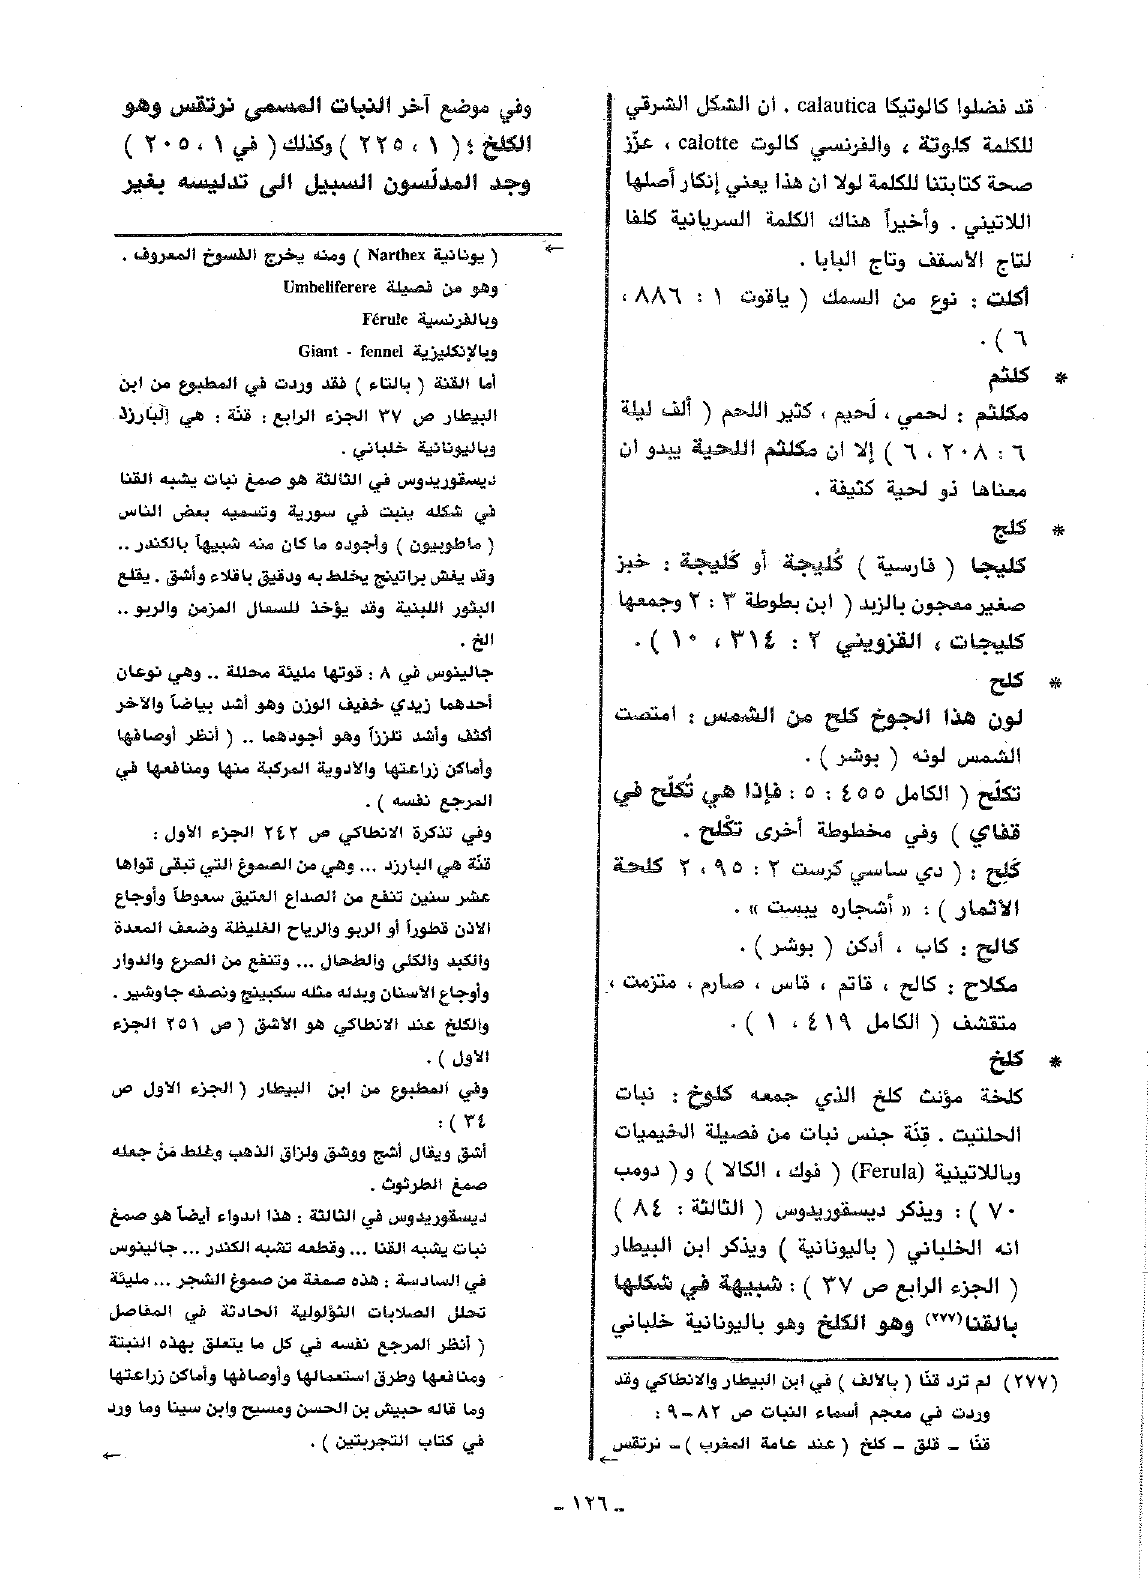 قد فضلوا كالوتيكا calautica . ان الشكل الشرقي
للكلمة كلوتة ، والفرنسي كالوت calotte ، عزّز
صحة كتابتنا للكلمة لولا ان هذا يعني إنكار أصلها
اللاتيني . وأخيراً هناك الكلمة السريانية كلفا
لتاج الأسقف وتاج البابا .
أكلت : نوع من السمك ( ياقوت ١ : ٨٨٦ ،
٦ ) .
* كلثم
مكلثم : لحمي ، لَحيم ، كثير اللحم ( ألف ليلة
٦ : ٢٠٨ ، ٦ ) إلا ان مكلثم اللحية يبدو ان
معناها ذو لحية كثيفة .
* كلج
كليجا ( فارسية ) كُليجة أو كَليجة : خبز
صغير معجون بالزبد ( ابن بطوطة ٣ : ٢ وجمعها
كليجات ، القزويني ٢ : ٣١٤ ، ١٠ ) .
* كلح
لون هذا الجوخ كلح من الشمس : امتصت
الشمس لونه ( بوشر ) .
تكلّح ( الكامل ٤٥٥ : ٥ : فإذا هي تُكلّح في
قفاي ) وفي مخطوطة أخرى تكْلح .
كَلِح : ( دي ساسي كرست ٢ : ٩٥ ، ٢ كلحة
الأثمار ) : « أشجاره يبست » .
كالح : كاب ، أدكن ( بوشر ) .
مكلاح : كالح ، قاتم ، قاس ، صارم ، متزمت ،
متقشف ( الكامل ٤١٩ ، ١ ) .
* كلخ
كلخة مؤنث كلخ الذي جمعه كلوخ : نبات
الحلتيت . قِنّة جنس نبات من فصيلة الخيميات
وباللاتينية (Ferula) ( فوك ، الكالا ) و ( دومب
٧٠ ) : ويذكر ديسقوريدوس ( الثالثة : ٨٤ )
انه الخلباني ( باليونانية ) ويذكر ابن البيطار
( الجزء الرابع ص ٣٧ ) : شبيهة في شكلها
بالقنا(٢٧٧) وهو الكلخ وهو باليونانية خلباني
(٢٧٧) لم ترد قنّا ( بالألف ) في ابن البيطار والانطاكي وقد
وردت في معجم أسماء النبات ص ٨٢-٩ :
قنّا – قلق – كلخ ( عند عامة المغرب ) – نرتقس
←
وفي موضع آخر النبات المسمى نرتقس وهو
الكلخ ؛ ( ١ ، ٢٢٥ ) وكذلك ( في ١ ، ٢٠٥ )
وجد المدلّسون السبيل الى تدليسه بغير
←
( يونانية Narthex ) ومنه يخرج الفسوخ المعروف .
وهو من فصيلة Umbeliferere
وبالفرنسية Férule
وبالإنكليزية Giant - fennel
أما القنة ( بالتاء ) فقد وردت في المطبوع من ابن
البيطار ص ٣٧ الجزء الرابع : قنّة : هي البارزد
وباليونانية خلباني .
ديسقوريدوس في الثالثة هو صمغ نبات يشبه القنا
في شكله ينبت في سورية وتسميه بعض الناس
( ماطوبيون ) وأجوده ما كان منه شبيهاً بالكندر ..
وقد يغش براتينج يخلط به ودقيق باقلاء وأشق . يقلع
البثور اللبنية وقد يؤخذ للسعال المزمن والربو ..
الخ .
جالينوس في ٨ : قوتها ملينة محللة .. وهي نوعان
أحدهما زبدي خفيف الوزن وهو أشد بياضاً والآخر
أكثف وأشد تلززاً وهو أجودهما .. ( أنظر أوصافها
وأماكن زراعتها والأدوية المركبة منها ومنافعها في
المرجع نفسه ) .
وفي تذكرة الانطاكي ص ٢٤٢ الجزء الأول :
قنّة هي البارزد ... وهي من الصموغ التي تبقى قواها
عشر سنين تنفع من الصداع العتيق سعوطاً وأوجاع
الأذن قطوراً أو الربو والرياح الغليظة وضعف المعدة
والكبد والكلى والطحال ... وتنفع من الصرع والدوار
وأوجاع الأسنان وبدله مثله سكبينج ونصفه جاوشير .
والكلخ عند الانطاكي هو الأشق ( ص ٢٥١ الجزء
الأول ) .
وفي المطبوع من ابن البيطار ( الجزء الأول ص
٣٤ ) :
أشق ويقال أشج ووشق ولزاق الذهب وغلط مَنْ جعله
صمغ الطرثوث .
ديسقوريدوس في الثالثة : هذا الدواء أيضاً هو صمغ
نبات يشبه القنا ... وقطعه تشبه الكندر ... جالينوس
في السادسة : هذه صمغة من صموغ الشجر ... ملينة
تحلل الصلابات الثؤلولية الحادثة في المفاصل
( أنظر المرجع نفسه في كل ما يتعلق بهذه النبتة
ومنافعها وطرق استعمالها وأوصافها وأماكن زراعتها
وما قاله حبيش بن الحسن ومسيح وابن سينا وما ورد
في كتاب التجربتين ) .
←
– ١٢٦ –